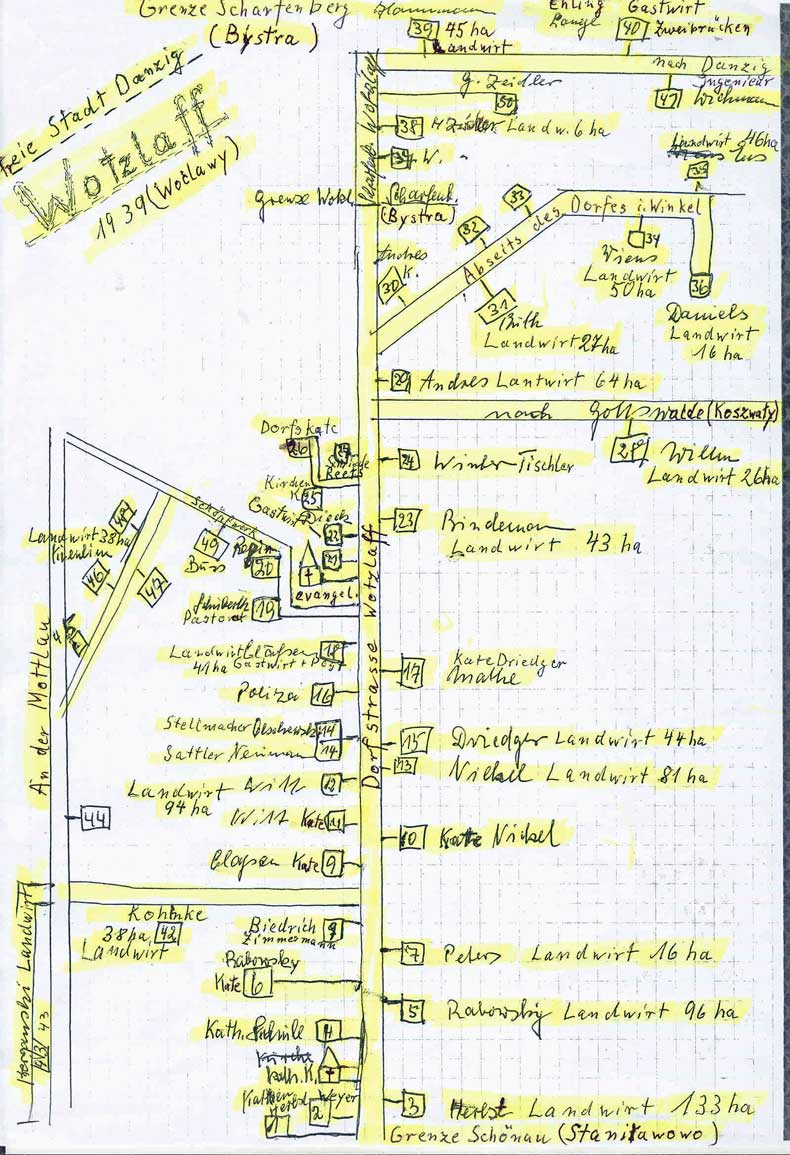 Grenze Scharfenberg
(Bystra)
39 45 ha
Landwirt
Ehling Gastwirt
40 Zweibrücken
nach Danzig
Ingenieur
41 Wichmann
Freie Stadt Danzig
Wotzlaff
1939 (Wotlawy)
G. Zeidler
50
38 Landw. 6 ha
W.
Grenze Wotzl.
Scharfenb.
(Bystra)
Landwirt 46 ha
33
Dorfes i. Winkel
32
Abseits des
34
Wiens
Landwirt
50 ha
36
Daniels
Landwirt
16 ha
Andres
K.
30
31
Landwirt 27 ha
29 Andres Lantwirt 64 ha
nach Gottswalde (Koszwały)
28 Willm
Landwirt 26 ha
Dorfskate
26
24 Winter Tischler
Kirchen
K 25
Gastwirt
22
23 Bindeman
Landwirt 43 ha
21
evangel.
Schöpfwerk
48
Landwirt 38 ha
49
Büss
46
47
20
19
Pastorat
An der Mottlau
Dorfstrasse Wotzlaff
Landwirt Claaßen 18
41 ha Gastwirt + Post
17 Kate Driedger
Mathe
Polizei 16
Stellmacher 14
Sattler Neuman 14
15 Driedger Landwirt 44 ha
13 Nickel Landwirt 81 ha
Landwirt Witt 12
94 ha
Witt Kate 11
44
10 Kate Nickel
Claasen Kate 9
Kohnke
38 ha 42
Landwirt
Biedrich
Zimmermann
7 Peters Landwirt 16 ha
Rabowsky
Kate 6
5 Rabowsky Landwirt 96 ha
Landwirt
43
Kath. Schule 4
Kirche
Kath. K.
Weyer
2
3 Herbst Landwirt 133 ha
Grenze Schönau (Stanisławowo)